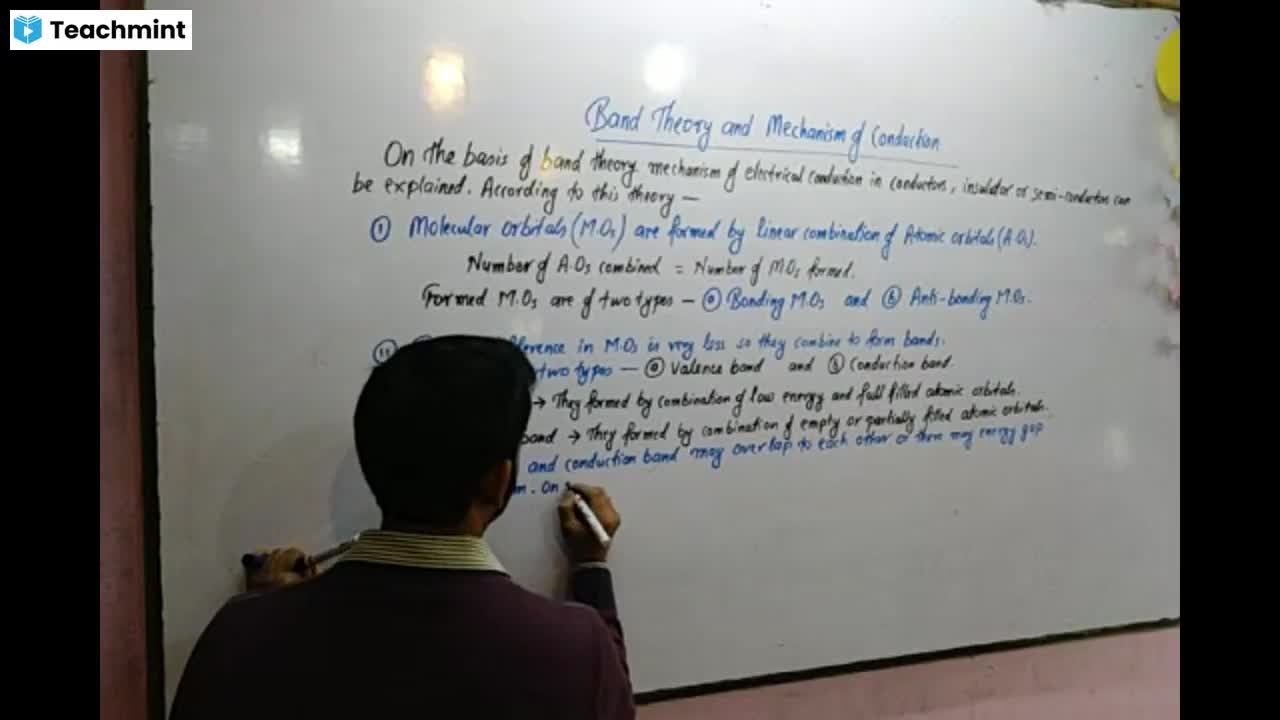 Teachmint
Band Theory and Mechanism of Conduction
On the basis of band theory mechanism of electrical conduction in conductors, insulator or semi-conductors can
be explained. According to this theory —
(i) Molecular orbitals (M.Os) are formed by linear combination of Atomic orbitals (A.Os).
Number of A.Os combined = Number of M.Os formed.
Formed M.Os are of two types — (a) Bonding M.Os and (b) Anti-bonding M.Os.
(ii) in M.Os is very less so they combine to form bands.
two types — (a) Valence band and (b) Conduction band.
→ They formed by combination of low energy and full filled atomic orbitals.
band → They formed by combination of empty or partially filled atomic orbitals.
and conduction band may overlap to each other or there may energy gap
. On